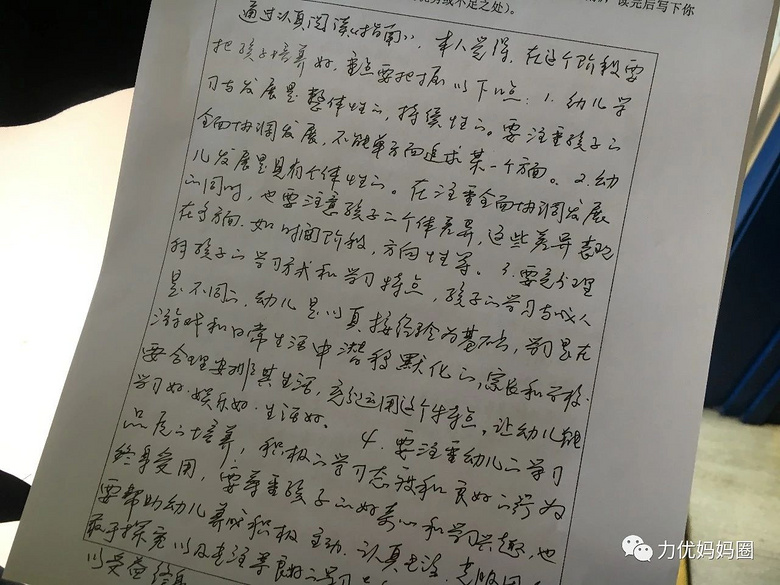 势或不足之处)。
读完后写下你
通过认真阅读《指南》,本人觉得,在这个阶段要
把孩子培养好,重点要把握以下几点:1.幼儿学
习与发展是整体性的,持续性的。要注重孩子的
全面协调发展,不能单方面追求某一个方面。2.幼
儿发展是具有个体性的。在注重全面协调发展
的同时,也要注意孩子的个体差异,这些差异表现
在多方面.如时间阶段,方向性等。3.要充分理
孩子的学习方式和学习特点,孩子的学习与成人
是不同的,幼儿是以直接经验为基础,学习是在
游戏和日常生活中潜移默化的,家长和学校
要合理安排其生活,充分运用这个特点,让幼儿能
学习好.娱乐好.生活好。 4.要注重幼儿的学习
品质的培养,积极的学习态度和良好的行为
终身受用,要尊重孩子的好奇心和学习兴趣,也
要帮助幼儿养成积极主动.认真专注.
敢于探究以及专注等良好的学习
以受益终身
力优妈妈圈